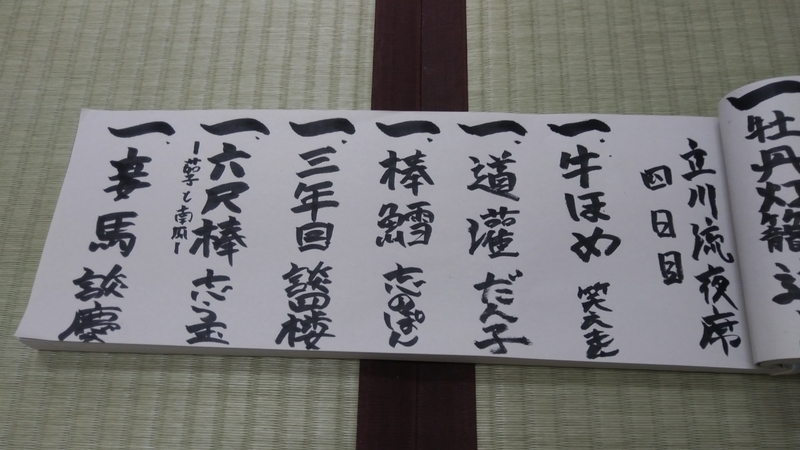 一、牡丹灯籠
立川流夜席
四日目
一、牛ほめ
一、道灌 だん子
一、棒鱈 志のぽん
一、三年目 談四楼
一、六尺棒 志ら玉
ー茄子と南瓜ー
一、妾馬 談慶